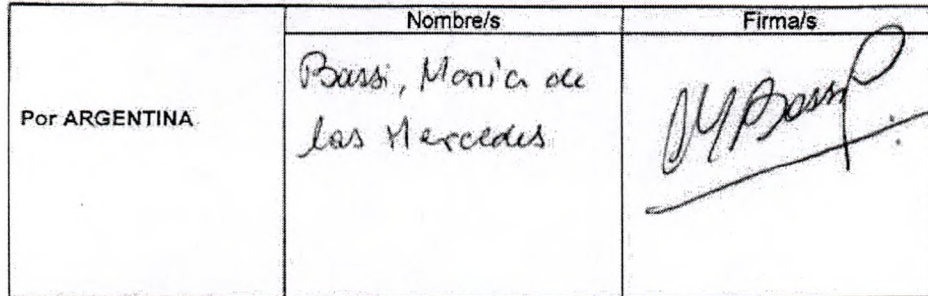 Nombre/s
Firma/s
Por ARGENTINA
Bassi, Monica de
las Mercedes
MBassi